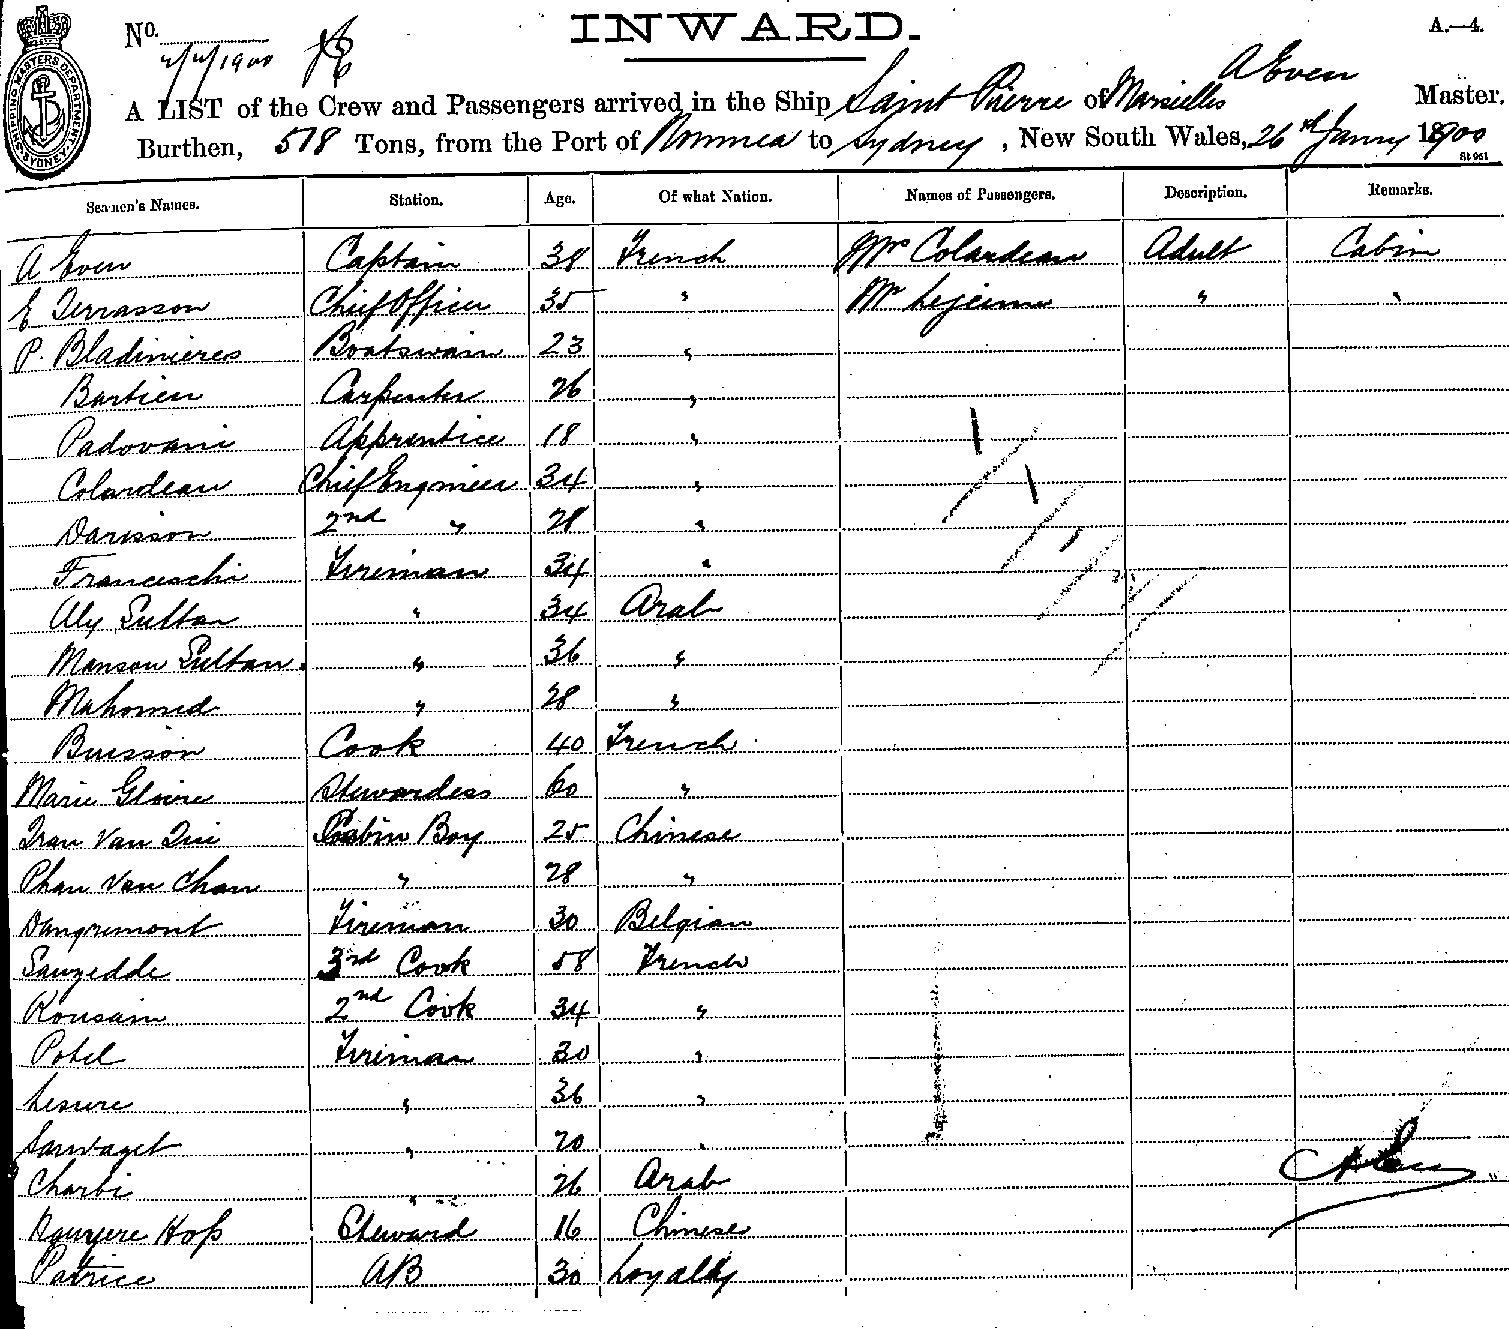 INWARD.
A.—4.
No.
2/2/1900
SHIPPING MASTERS DEPARTMENT
A Even
A LIST of the Crew and Passengers arrived in the Ship Saint Pierre of Marseilles Master,
Burthen, 518 Tons, from the Port of Noumea to Sydney, New South Wales, 26th Janry 1900
Seamen's Names. Station. Age. Of what Nation. Names of Passengers. Description. Remarks.
A Even Captain 38 French Mrs Colardeau Adult Cabin
E Terrasson Chief Officer 35 " Mr Lejeune " "
P. Bladinieres Boatswain 23 "
Bastien Carpenter 26 "
Padovani Apprentice 18 "
Colardeau Chief Engineer 34 "
Darisson 2nd " 28 "
Franceschi Fireman 34 "
Aly Sultan " 34 Arab
Manson Sultan " 36 "
Mahomed " 28 "
Buisson Cook 40 French
Marie Gloire Stewardess 60 "
Tran Van Qui Cabin Boy 25 Chinese
Phan Van Chan " 28 "
Dangremont Fireman 30 Belgian
Sauzedde 3rd Cook 58 French
Rousain 2nd Cook 34 "
Potel Fireman 30 "
Lesure " 36 "
Sauvaget " 20 "
Charbi " 26 Arab
Steward 16 Chinese
Patrice AB 30 Loyalty
A Even